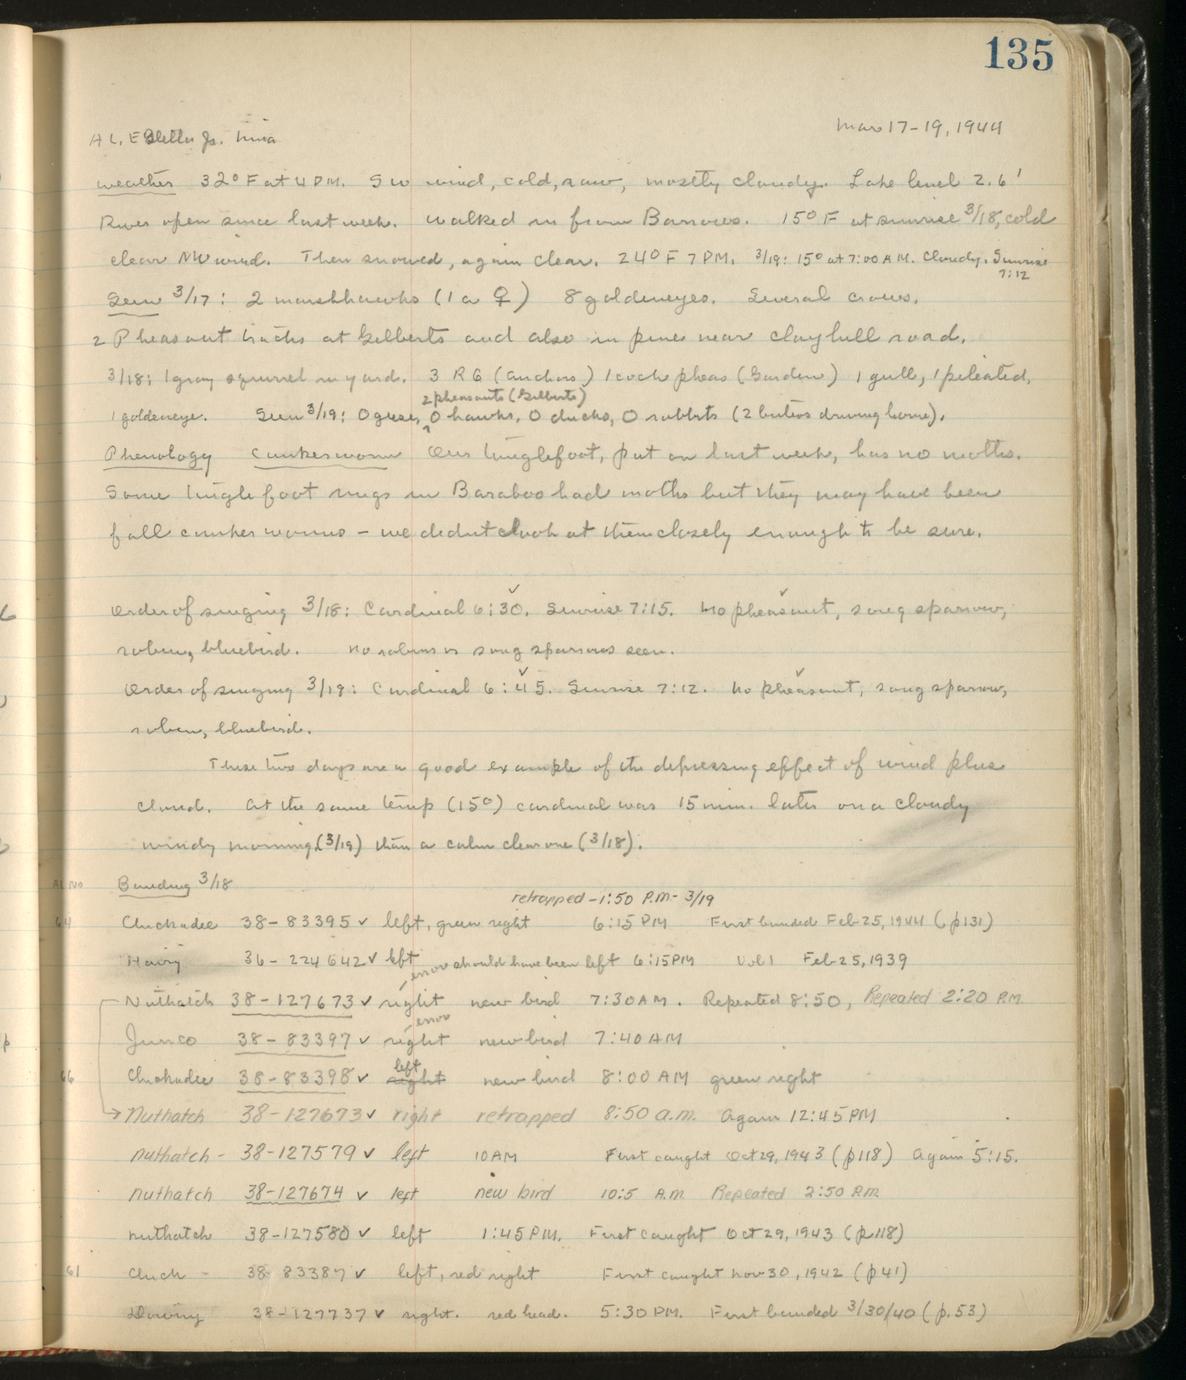 135
AL, E Stella Jr. Nina Mar 17-19, 1944
Weather 32° F at 4 PM. SW wind, cold, raw, mostly cloudy. Lake level 2.6'
River open since last week. Walked in from Barrows. 15° F at sunrise 3/18, cold
clear NW wind. Then snowed, again clear. 24° F 7 PM. 3/19: 15° at 7:00 A.M. Cloudy. Sunrise
7:12
Seen 3/17: 2 marshhawks (1 a ♀) 8 goldeneyes. Several crows.
2 Pheasant tracks at Gilberts and also in pines near clayhill road.
3/18: 1 gray squirrel in yard. 3 RG (Anchors) 1 cock pheas (Garden) 1 gull, 1 pileated,
2 pheasants (Gilberts)
1 goldeneye. Seen 3/19: 0 geese, 0 hawks, 0 ducks, 0 rabbits (2 buteos driving home).
Phenology Cankerworm Our tanglefoot, put on last week, has no moths.
Some tanglefoot rings in Baraboo had moths but they may have been
fall canker worms - we didnt look at them closely enough to be sure.
Order of singing 3/18: Cardinal 6:30. Sunrise 7:15. No pheasant, song sparrow,
robin, bluebird. No robins or song sparrows seen.
Order of singing 3/19: Cardinal 6:45. Sunrise 7:12. No pheasant, song sparrow,
robin, bluebird.
These two days are a good example of the depressing effect of wind plus
cloud. At the same temp (15°) cardinal was 15 min. later on a cloudy
windy morning (3/19) than a calm clear one (3/18).
AL NO Banding 3/18
retrapped - 1:50 P.M - 3/19
64 Chickadee 38-83395 ✓ left, green right 6:15 PM First banded Feb 25, 1944 (p131)
Hairy 36-224642 ✓ left 6:15 PM Vol 1 Feb 25, 1939
error should have been left
Nuthatch 38-127673 ✓ right new bird 7:30 AM. Repeated 8:50, Repeated 2:20 P.M.
error
Junco 38-83397 ✓ right new bird 7:40 AM
left
66 Chickadee 38-83398 ✓ right new bird 8:00 AM green right
Nuthatch 38-127673 ✓ right retrapped 8:50 a.m. Again 12:45 PM
Nuthatch - 38-127579 ✓ left 10 AM First caught Oct 29, 1943 (p118) Again 5:15.
Nuthatch 38-127674 ✓ left new bird 10:5 A.M. Repeated 2:50 P.M.
Nuthatch 38-127580 ✓ left 1:45 PM. First caught Oct 29, 1943 (p.118)
61 Chick - 38-83387 ✓ left, red right First caught Nov 30, 1942 (p41)
Downy 38-127737 ✓ right. red head. 5:30 PM. First banded 3/30/40 (p.53)